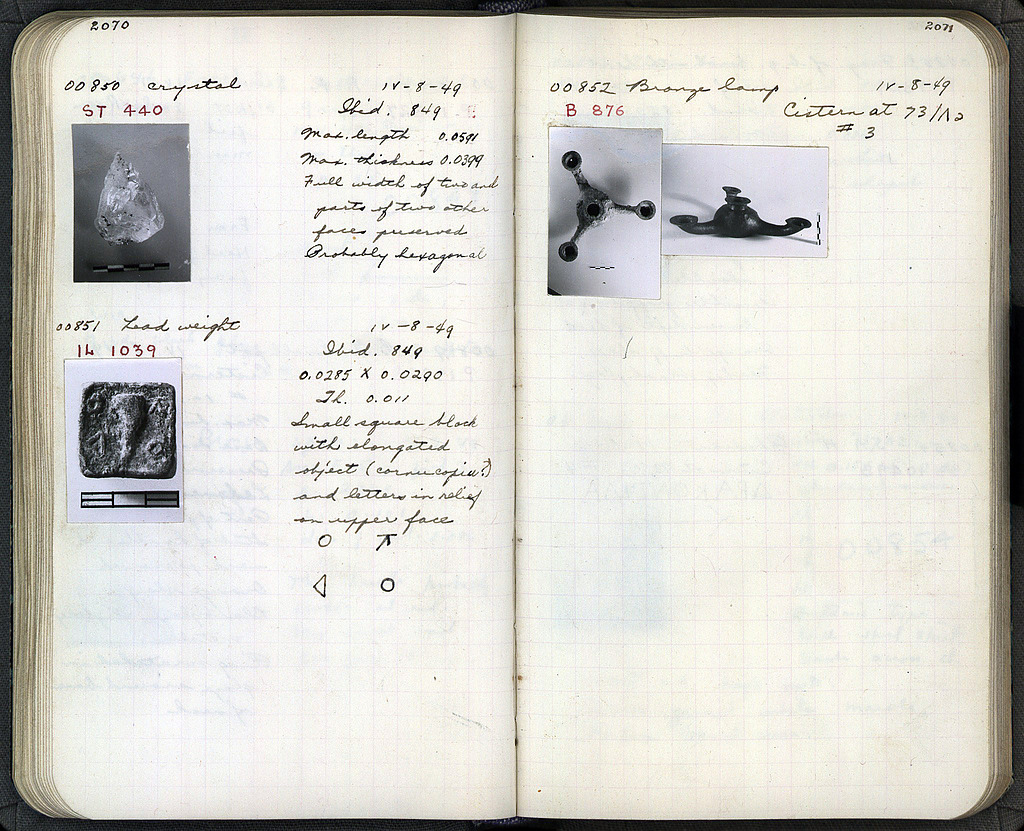 2070
OO 850 crystal IV-8-49
ST 440
Ibid. 849
Max. length 0.0591
Max. thickness 0.0399
Full width of two and
parts of two other
faces preserved
Probably hexagonal
OO 851 Lead weight IV-8-49
IL 1039
Ibid. 849
0.0285 X 0.0290
Th. 0.011
Small square block
with elongated
object (cornucopia?)
and letters in relief
on upper face
O
O
2071
OO 852 Bronze lamp IV-8-49
B 876
Cistern at 73/
# 3